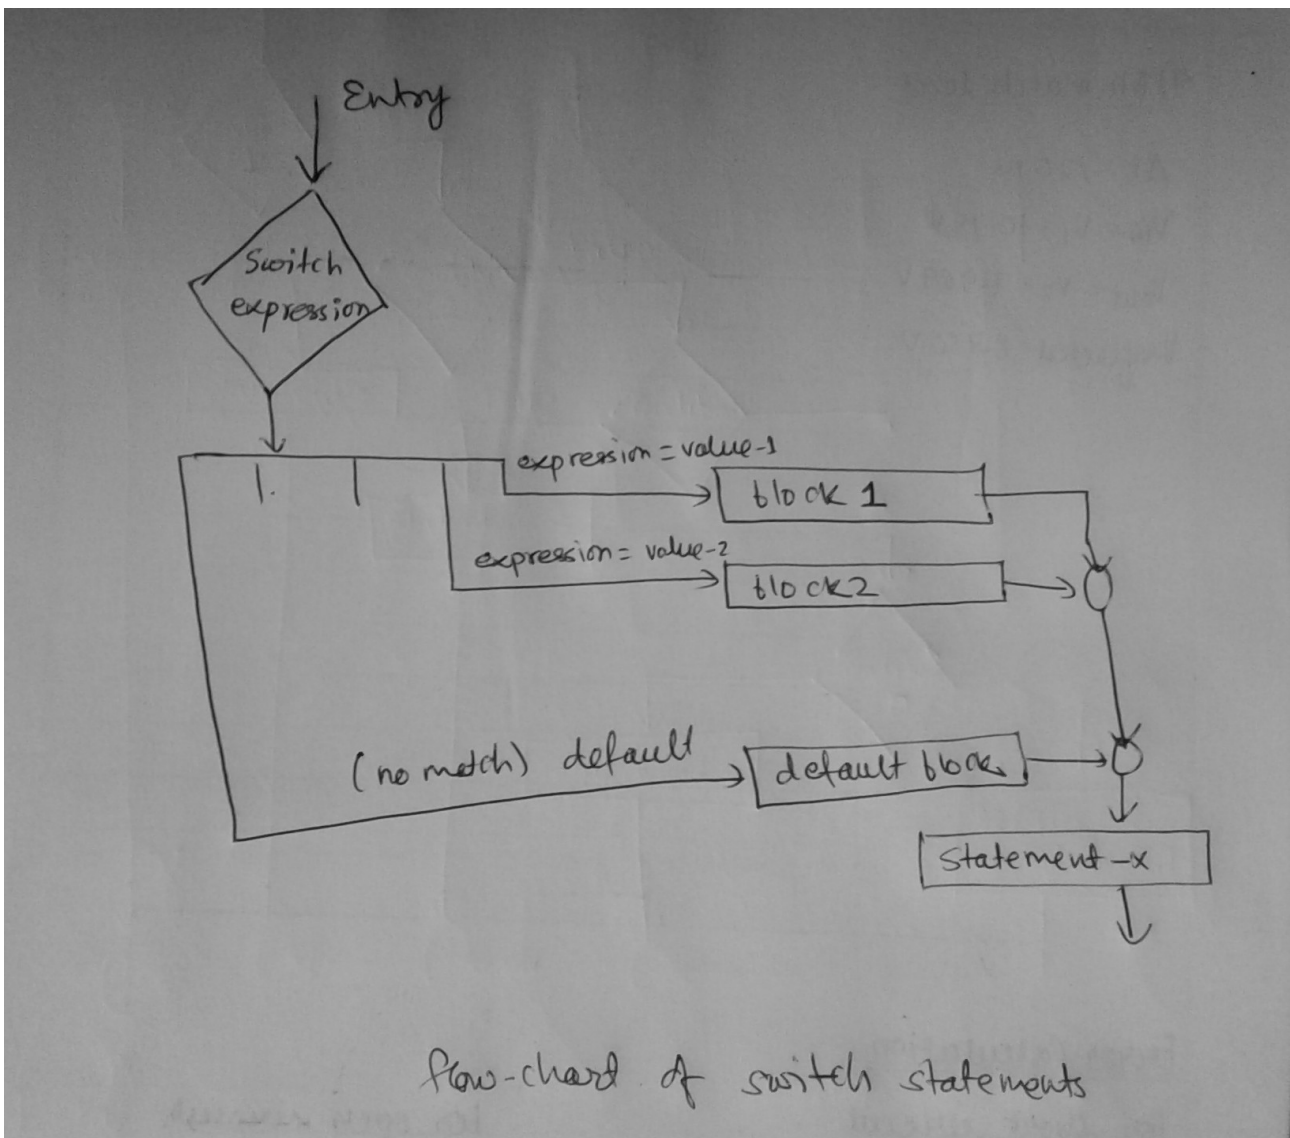 Entry
Switch
expression
expression = value-1
block 1
expression = value-2
block2
(no match) default
default block
Statement-x
flow-chart of switch statements